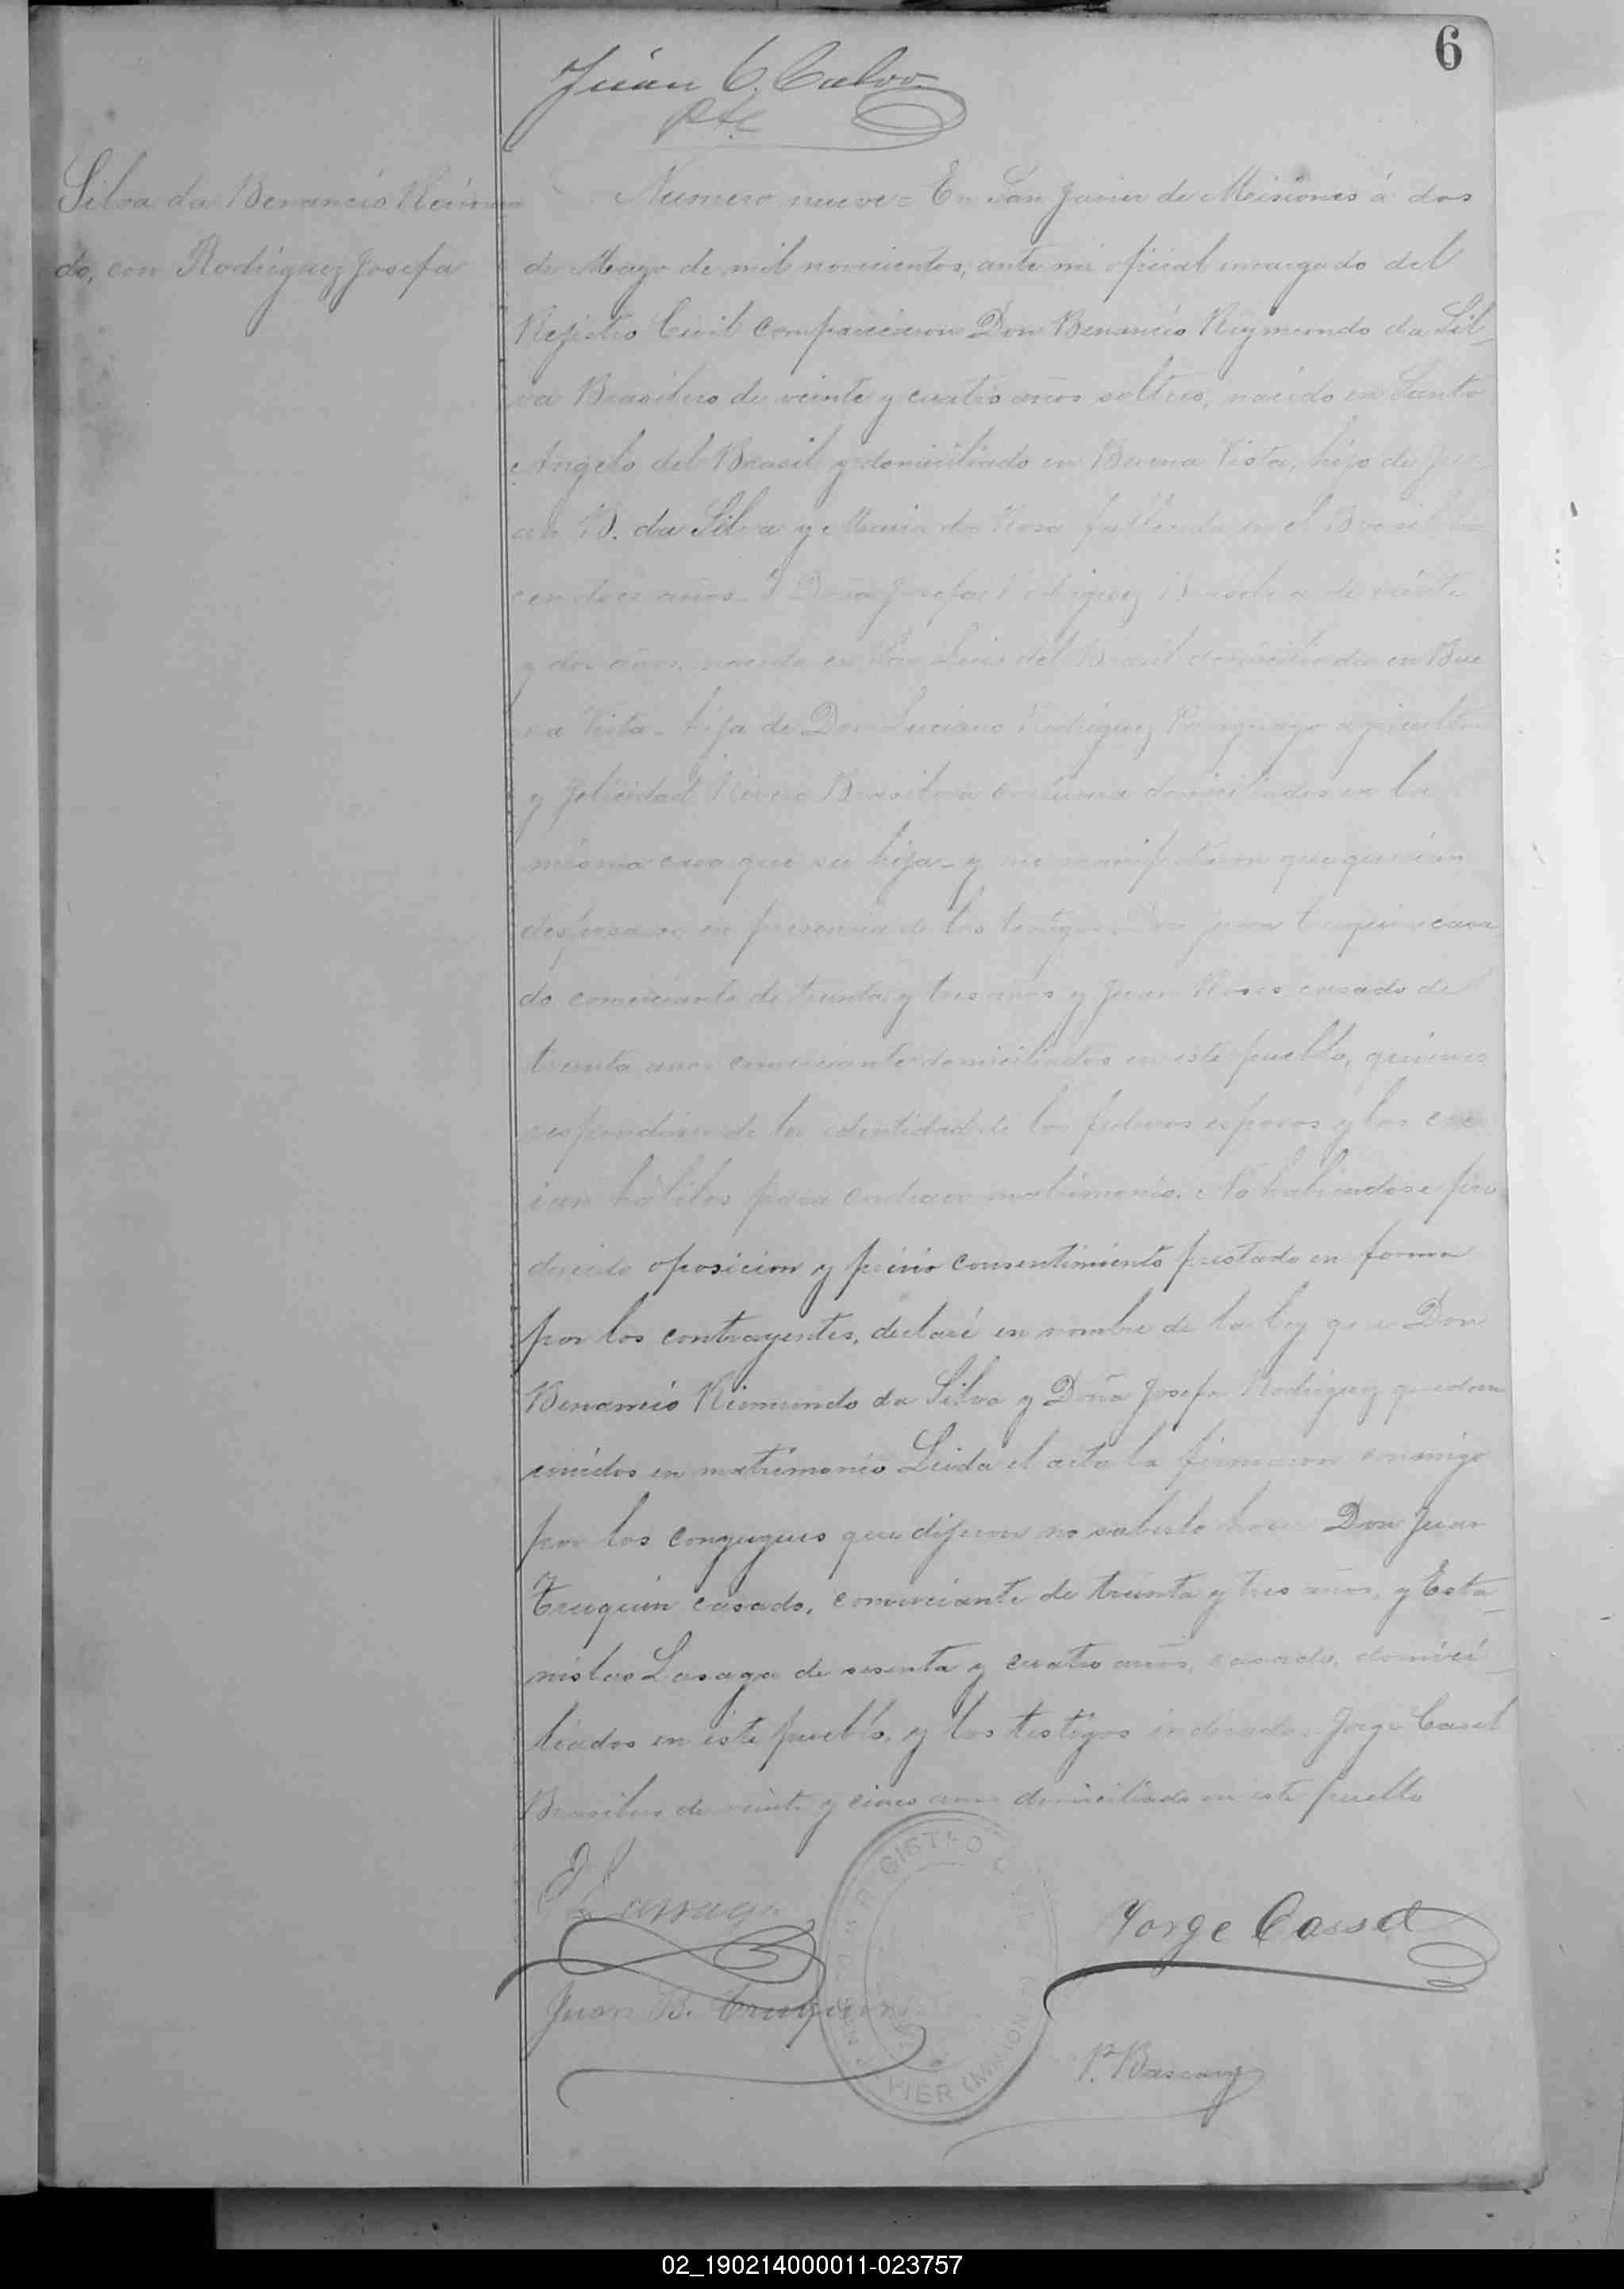 6
Juan C. Calvo
Pte
Silva da Benancio Reimun
do, con Rodriguez Josefa
Numero nueve = En San Javier de Misiones á dos
de Mayo de mil novecientos, ante mi oficial encargado del
Rejistro Civil comparecieron Don Benancio Reymundo da Sil_
va Brasilero de veinte y cuatro años soltero, nacido en Santo
Angelo del Brasil y domiciliado en Buena Vista, hijo de Ju_
an B. da Silva y Maria da Rosa fallecida en el Brasil ha
cen doce años_ Y Doña Josefa Rodriguez Brasilera de veinte
y dos años, nacida en San Luis del Brasil domiciliada en Bue
na Vista_ hija de Don Luciano Rodriguez Paraguayo agricultor
y Felicidad Brasilera domiciliados en la
misma casa que su hija_ y me manifestaron que querian
desposarse en presencia de los testigos Don Juan Truquin casa
do comerciante de treinta y tres años y Juan casado de
treinta años comerciante domiciliados en este pueblo, quienes
respondieron de la identidad de los futuros esposos y los cre
ian hábiles para contraer matrimonio. No habiendose pro
ducido oposicion y prévio consentimiento prestado en forma
por los contrayentes, declaré en nombre de la ley que Don
Benancio Reimundo da Silva y Doña Josefa Rodriguez quedan
unidos en matrimonio Leida el acta la firmaron conmigo
por los conyugues que dijeron no saberlo hacer Don Juan
Truquin casado, comerciante de treinta y tres años, y Esta_
nislao Lasaga de sesenta y cuatro años, casado, domici_
liados en este pueblo, y los testigos indicados Jorge Casel
Brasilero de veinte y cinco años domiciliado en este pueblo
E Lassaga
Jorge Cassel
Juan B. Truquin
P. Bascary
REGISTRO CIVIL
SAN JAVIER (MISIONES)
02_190214000011-023757